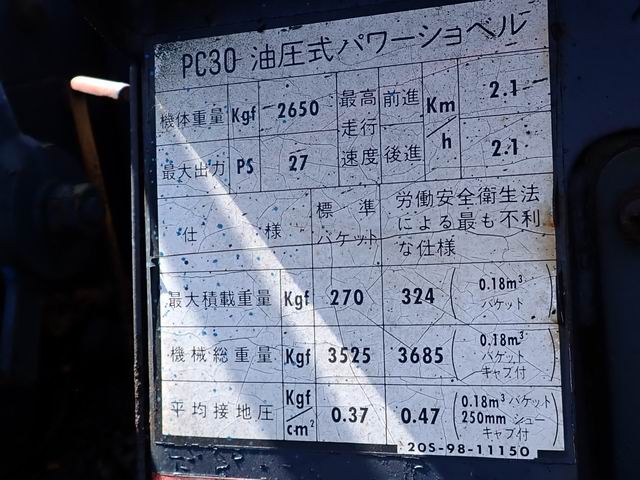 PC30 油圧式パワーショベル
機体重量 Kgf 2650 最高走行速度 前進 Km/h 2.1
最大出力 PS 27 後進 2.1
仕様 標準バケット 労働安全衛生法による最も不利な仕様
最大積載重量 Kgf 270 324 (0.18m³ バケット)
機械総重量 Kgf 3525 3685 (0.18m³ バケット キャブ付)
平均接地圧 Kgf/cm² 0.37 0.47 (0.18m³ バケット 250mm シュー キャブ付)
20S-98-11150